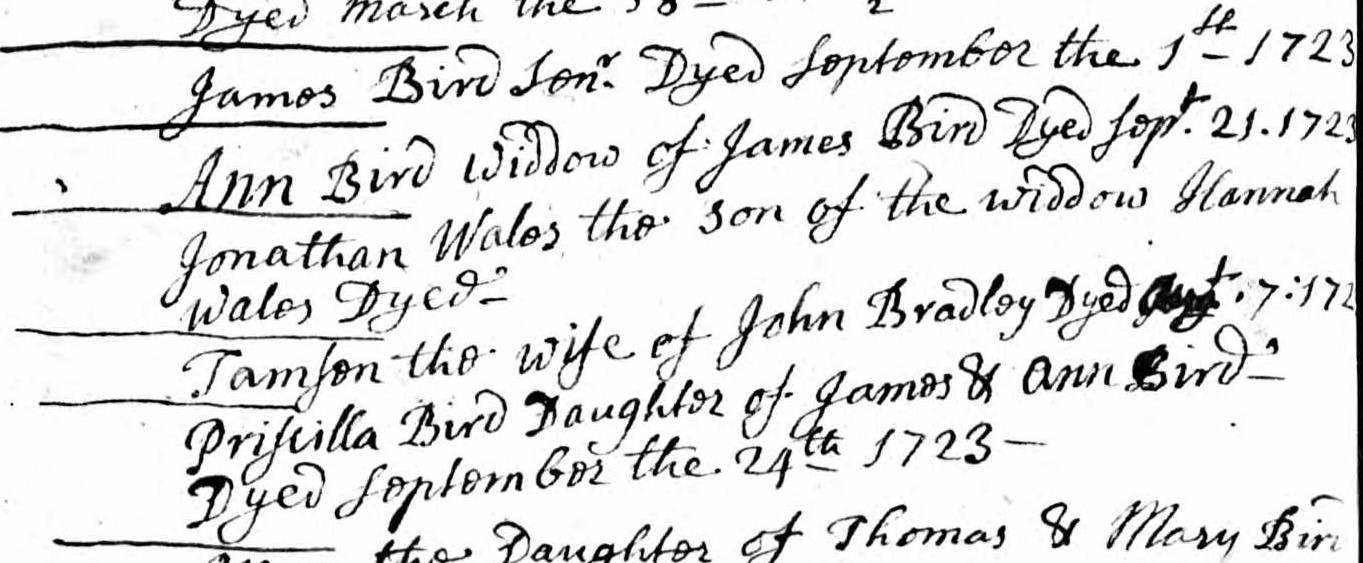 Dyed March the 18
James Bird Senr. Dyed September the 1st 1723
Ann Bird widdow of James Bird Dyed Sept. 21. 1723
Jonathan Wales the son of the widdow Hannah
Wales Dyed
Tamsen the wife of John Bradley Dyed Augt. 7: 172
Priscilla Bird Daughter of James & Ann Bird
Dyed September the 24th 1723
the Daughter of Thomas & Mary Bir